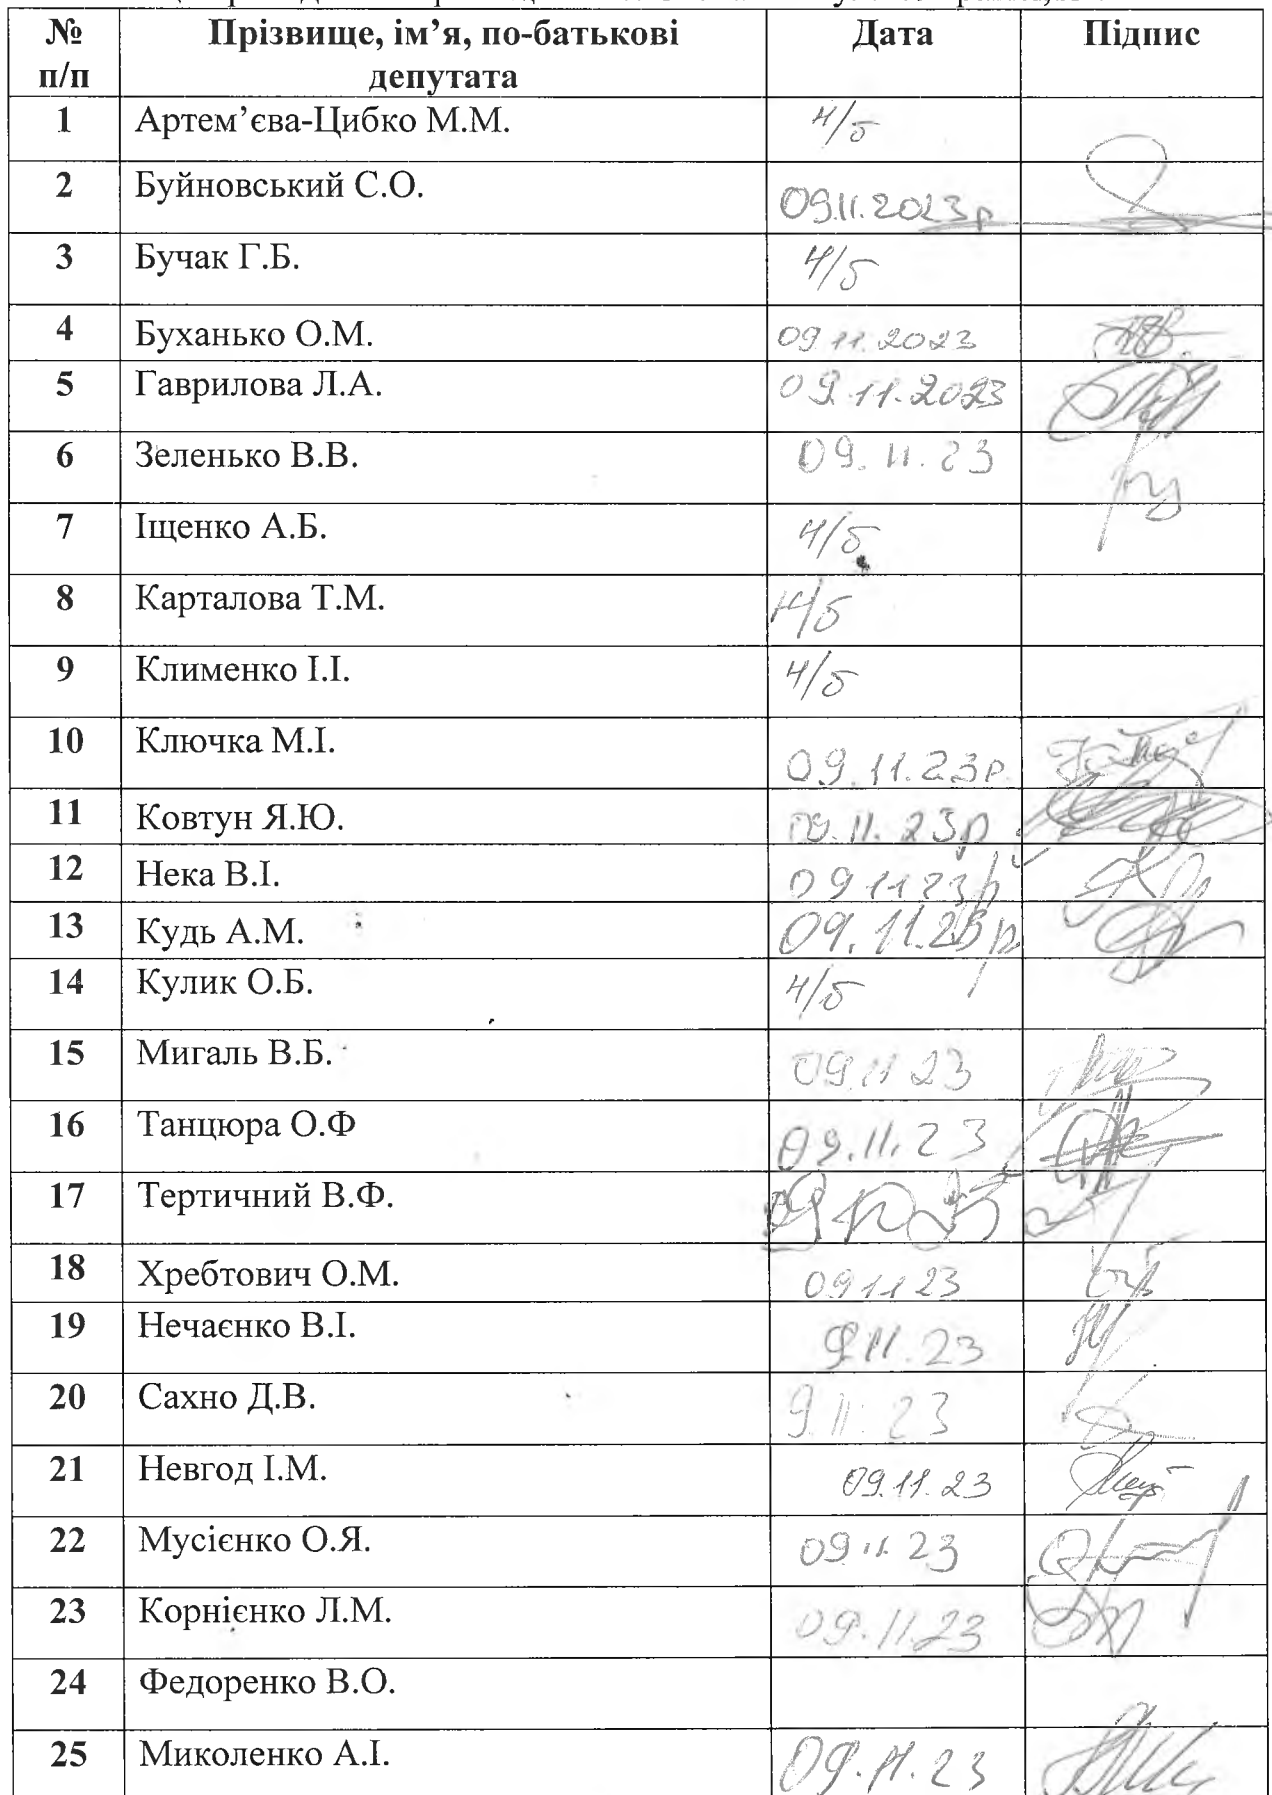 № Прізвище, ім’я, по-батькові Дата Підпис
п/п депутата
1 Артем’єва-Цибко М.М. н/б
2 Буйновський С.О. 09.11.2023р
3 Бучак Г.Б. н/б
4 Буханько О.М. 09.11.2023
5 Гаврилова Л.А. 09.11.2023
6 Зеленько В.В. 09.11.23
7 Іщенко А.Б. н/б
8 Карталова Т.М. н/б
9 Клименко І.І. н/б
10 Ключка М.І. 09.11.23р.
11 Ковтун Я.Ю. 09.11.23р
12 Нека В.І. 09.11.23р
13 Кудь А.М. 09.11.23р
14 Кулик О.Б. н/б
15 Мигаль В.Б. 09.11.23
16 Танцюра О.Ф 09.11.23
17 Тертичний В.Ф.
18 Хребтович О.М. 09.11.23
19 Нечаєнко В.І. 9.11.23
20 Сахно Д.В. 9.11.23
21 Невгод І.М. 09.11.23
22 Мусієнко О.Я. 09.11.23
23 Корнієнко Л.М. 09.11.23
24 Федоренко В.О.
25 Миколенко А.І. 09.11.23